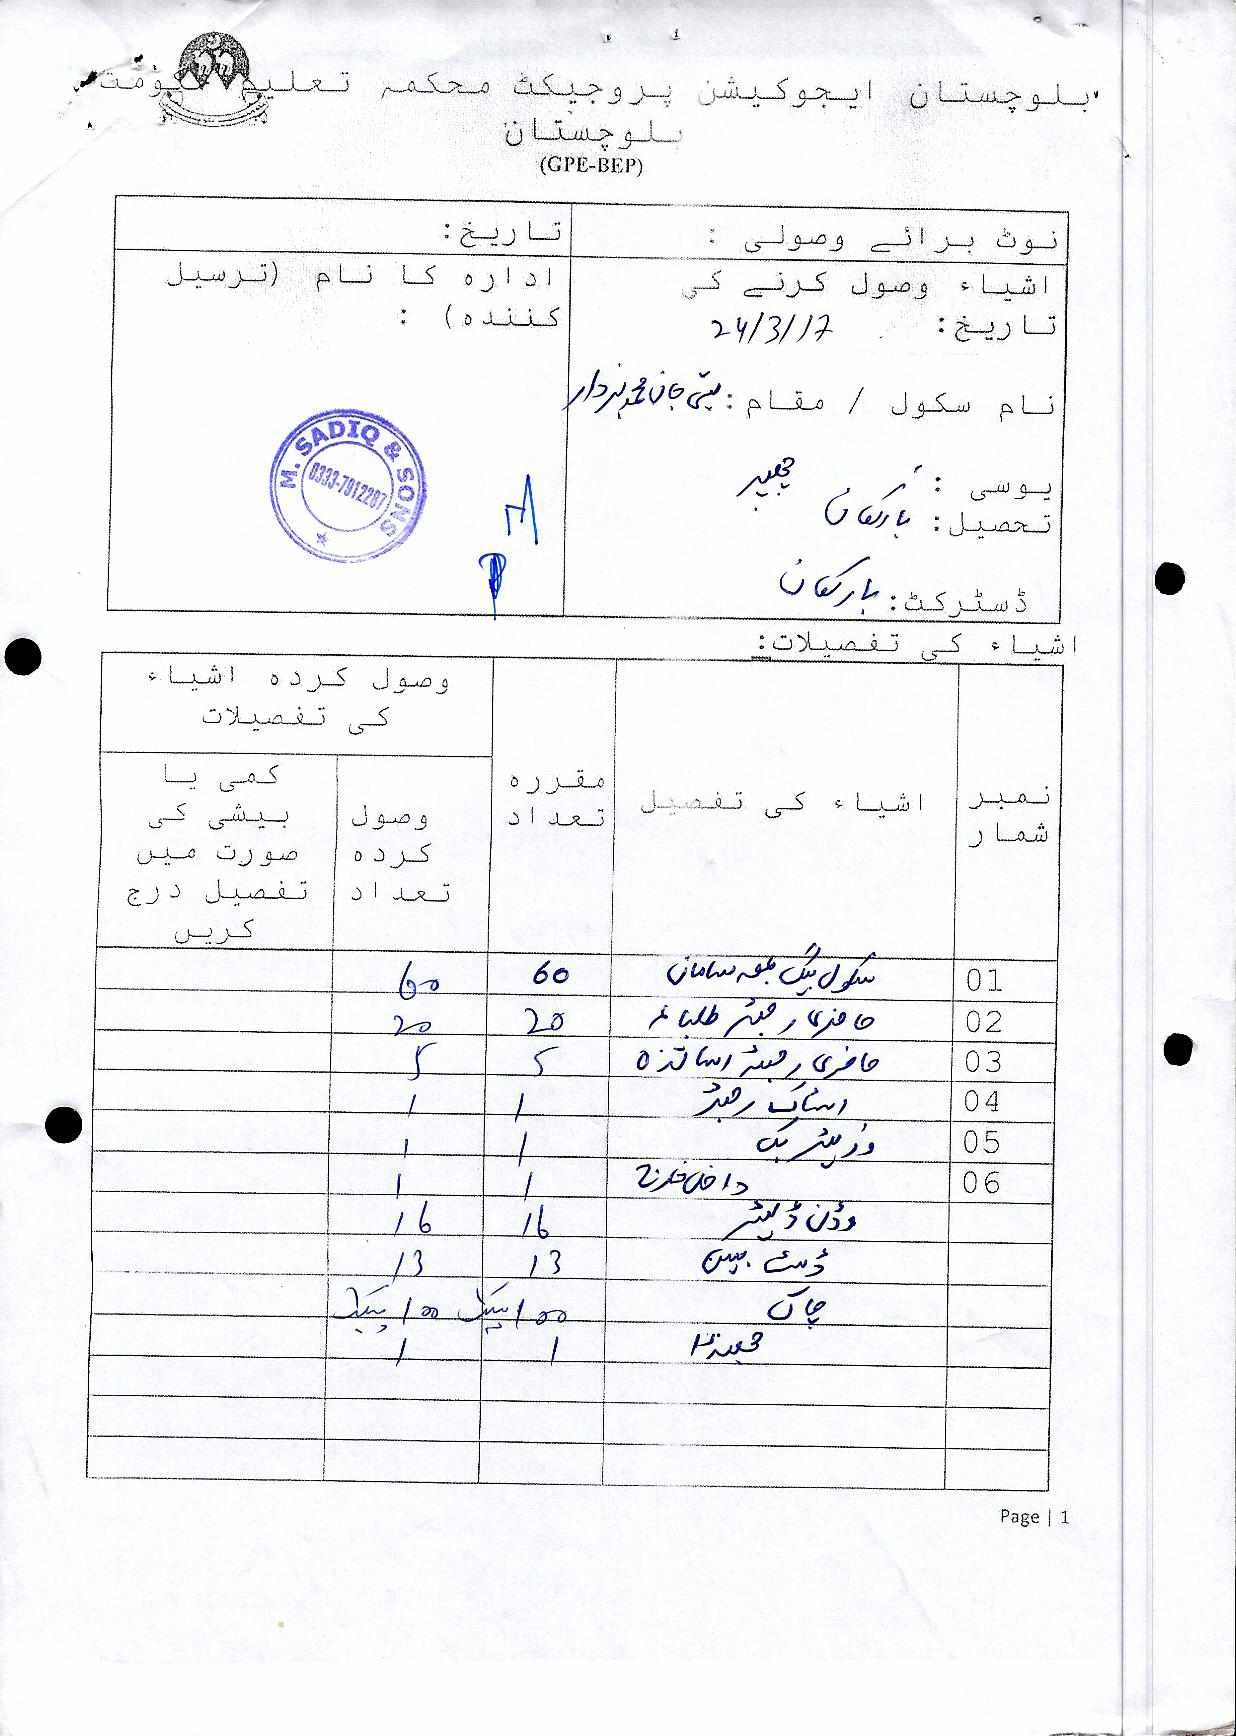 بلوچستان ایجوکیشن پروجیکٹ محکمہ تعلیم حکومت
بلوچستان
(GPE-BEP)
نوٹ برائے وصولی :
تاریخ:
اشیاء وصول کرنے کی
تاریخ: 24/3/17
نام سکول / مقام:
یوسی :
تحصیل: بارکھان
ڈسٹرکٹ: بارکھان
ادارہ کا نام (ترسیل
کنندہ) :
M. SADIQ & SONS
0333-7912287
اشیاء کی تفصیلات:
نمبر شمار
اشیاء کی تفصیل
مقررہ تعداد
وصول کردہ اشیاء
کی تفصیلات
وصول کردہ تعداد
کمی یا
بیشی کی
صورت میں
تفصیل درج
کریں
01 سکول بیگ بمعہ سامان 60 60
02 حاضری رجسٹر طلباء 20 20
03 حاضری رجسٹر اساتذہ 5 5
04 اسٹاک رجسٹر 1 1
05 وزیٹر بک 1 1
06 داخل خارج 1 1
16 16
ڈسٹ بین 13 13
چاک 100 پیکٹ 100 پیکٹ
1 1
Page | 1